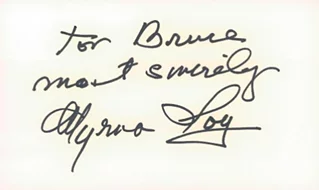 For Bruce
most sincerely
Myrna Loy